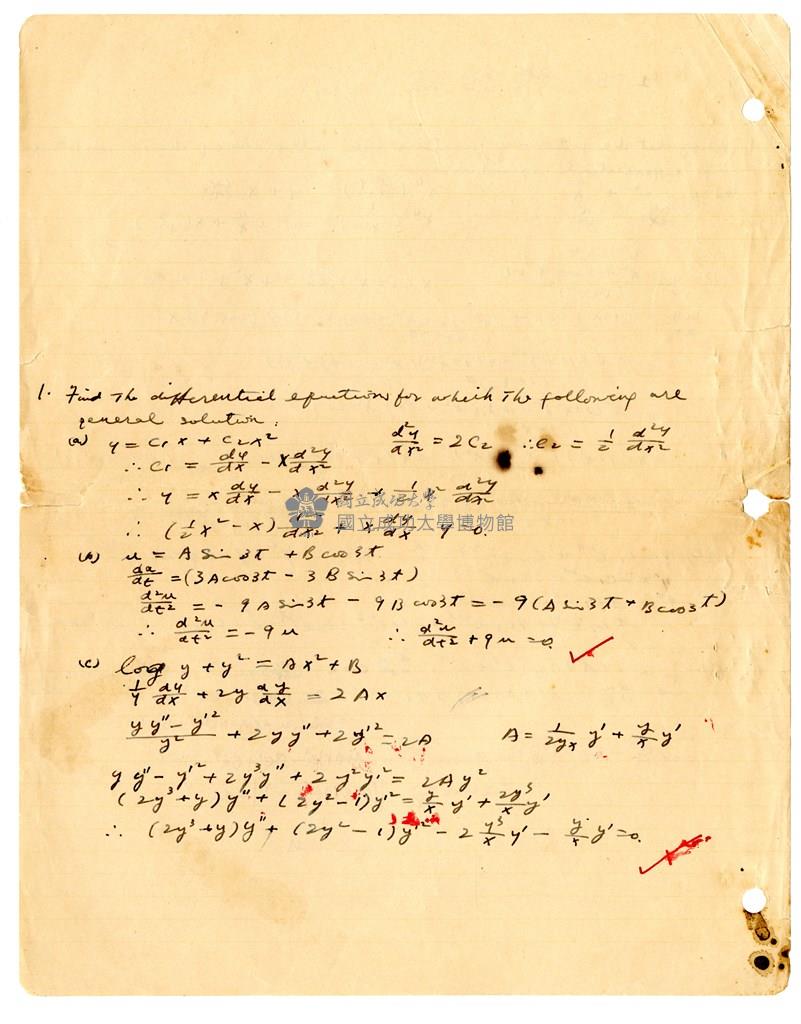 1. Find the differential equation for which the following are
general solution:
(a) y = C₁x + C₂x² d²y/dx² = 2C₂ ∴ C₂ = 1/2 d²y/dx²
∴ C₁ = dy/dx - x d²y/dx²
∴ y = x dy/dx - d²y/dx² + 1/2 x² d²y/dx²
國立成功大學
國立成功大學博物館
∴ (1/2 x² - x) /dx² + x dy/dx y 0.
(b) u = A Sin 3t + B cos 3t
du/dt = (3A cos3t - 3 B Sin 3t)
d²u/dt² = - 9 A Sin 3t - 9 B cos 3t = - 9 (A Sin 3t + B cos 3t)
∴ d²u/dt² = - 9 u ∴ d²u/dt² + 9 u = 0.
(c) log y + y² = Ax² + B
1/y dy/dx + 2y dy/dx = 2 Ax
(y y'' - y'²)/y² + 2 y y'' + 2y'² = 2A A = 1/2yx y' + y/x y'
y y'' - y'² + 2 y³ y'' + 2 y² y'² = 2 A y²
(2y³ + y) y'' + (2y² - 1) y'² = y/x y' + 2y³/x y'
∴ (2y³ + y) y'' + (2y² - 1) y'² - 2 y³/x y' - y/x y' = 0.